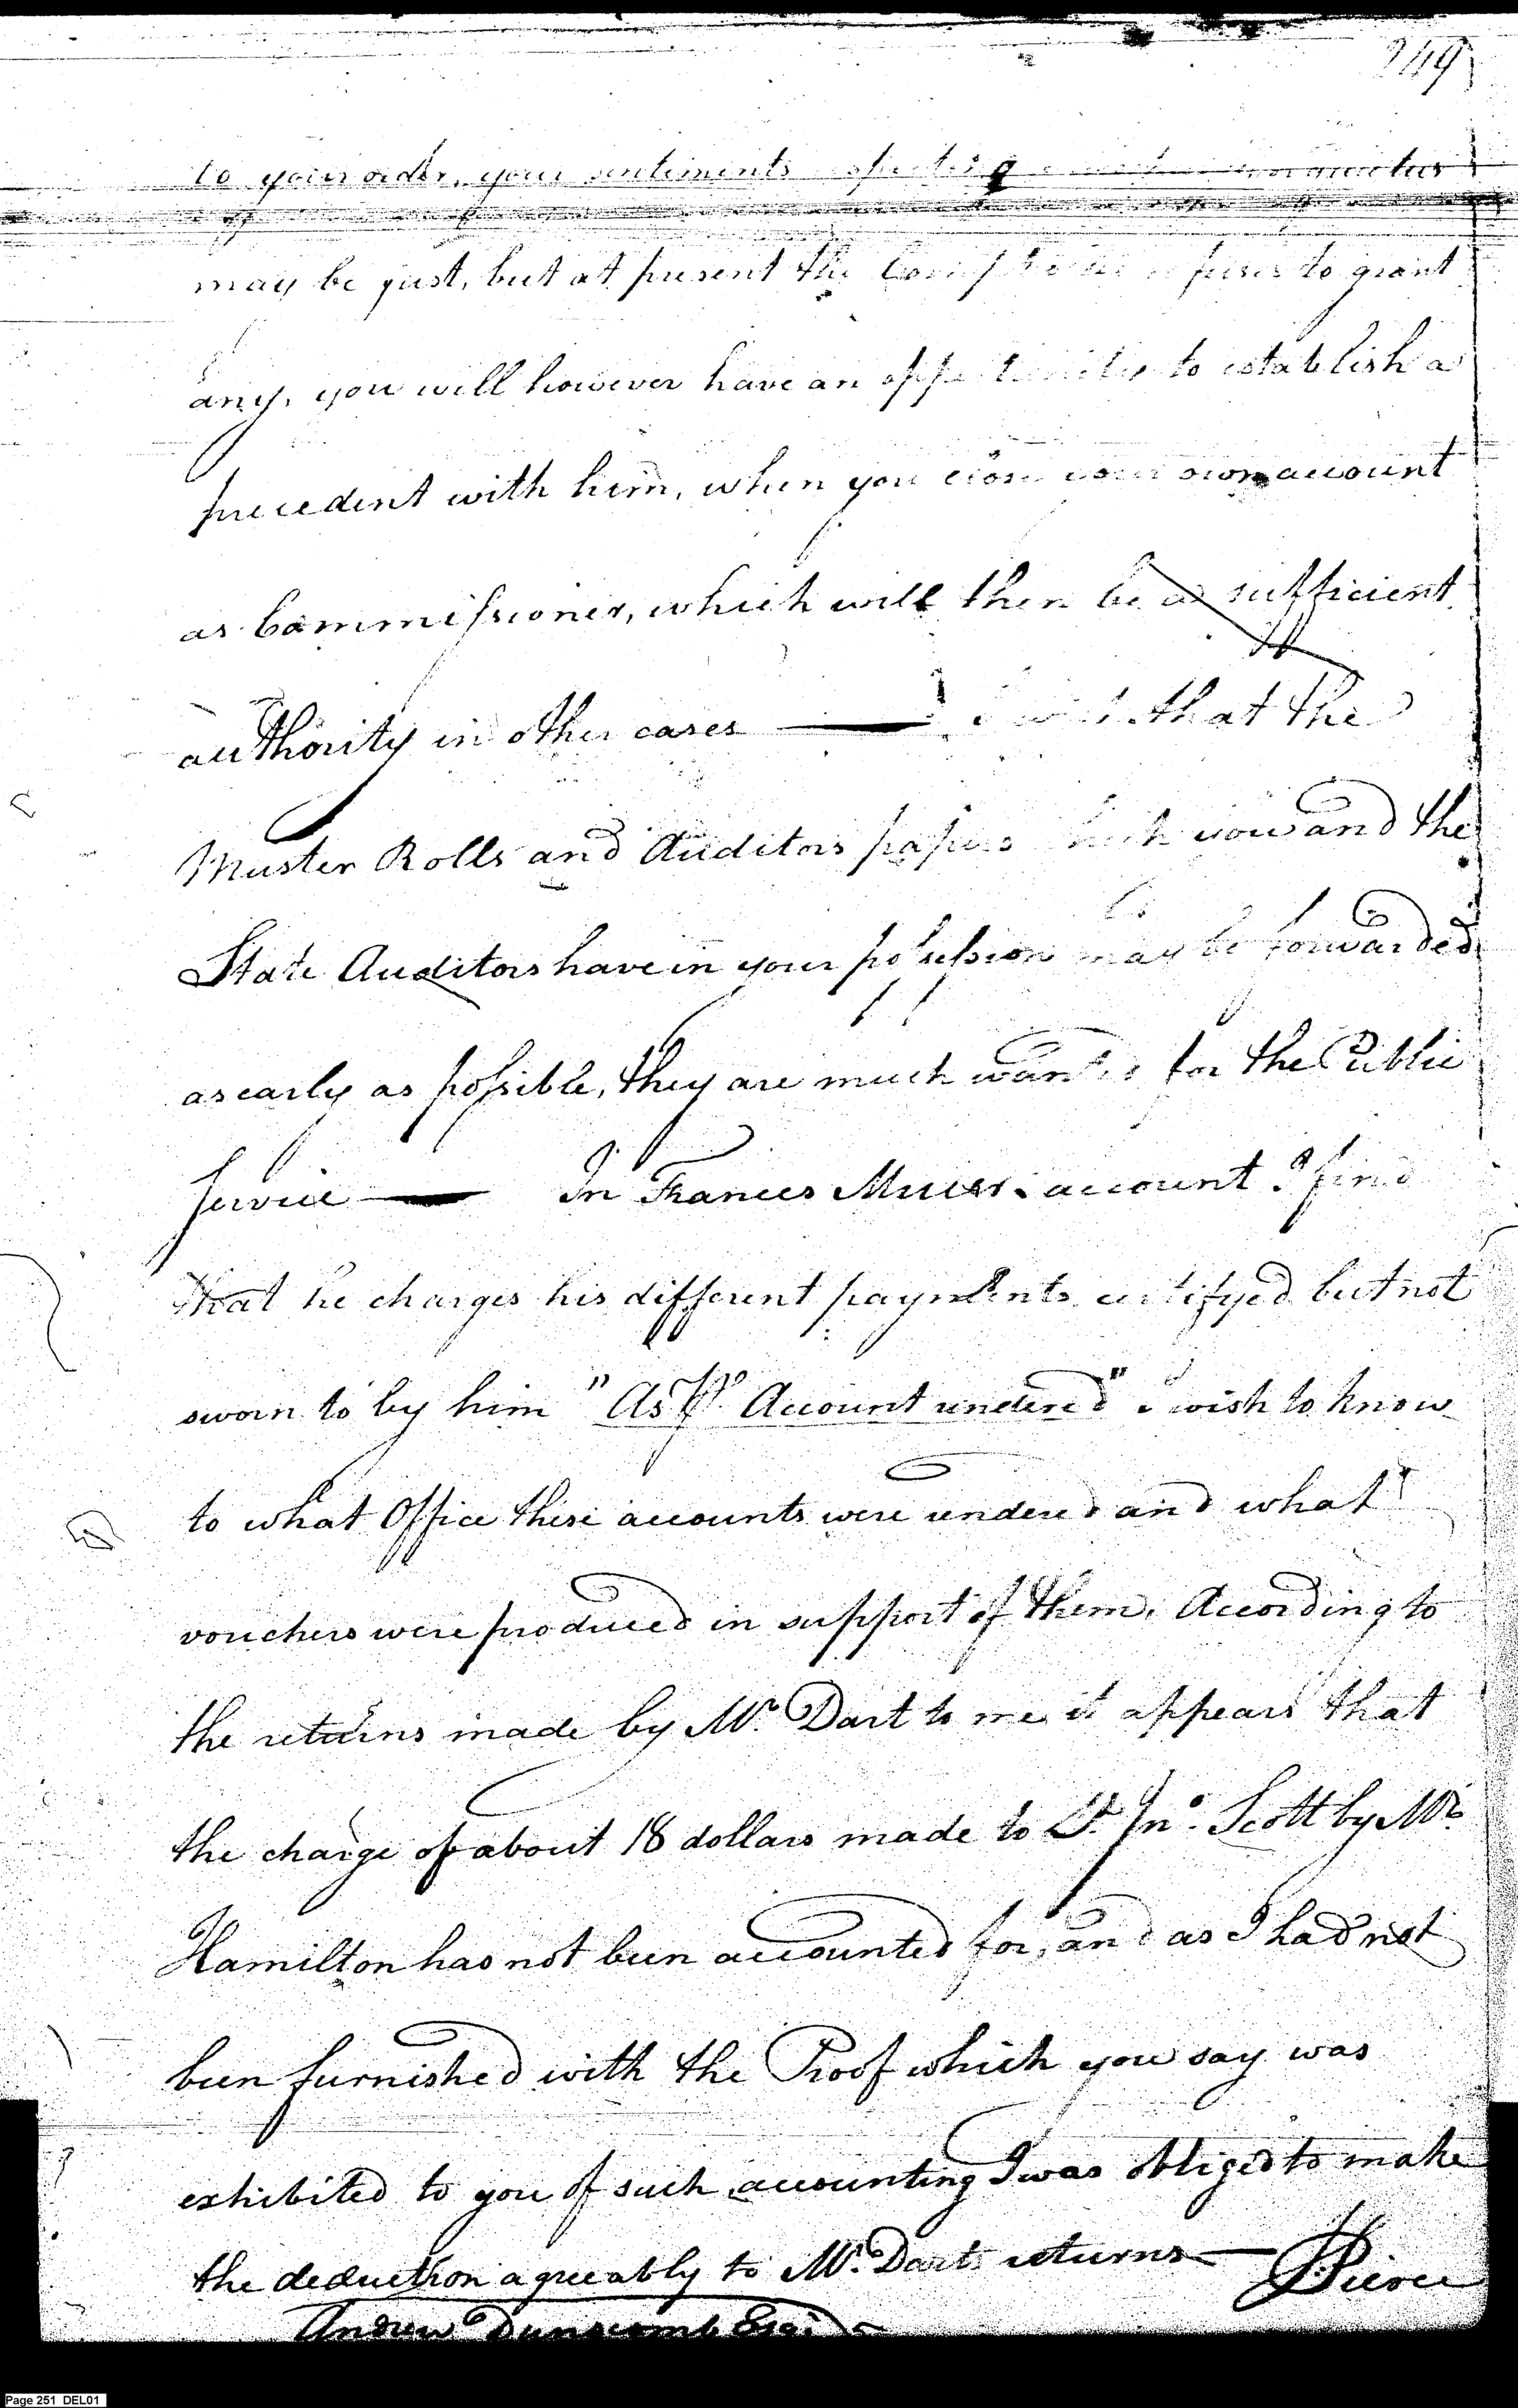 249
to your order, your sentiments
may be just, but at present the refuses to grant
any, you will however have an opportunity to establish a
precedent with him, when you close your own account
as Commissioner, which will then be a sufficient
authority in other cases — I wish that the
Muster Rolls and Auditors papers which you and the
State Auditors have in your possession may be forwarded
as early as possible, they are much wanted for the Public
service — In Frances account I find
that he charges his different payments certifyed but not
sworn to by him "As pr Account rendered" I wish to know
to what Office these accounts were rendered and what
vouchers were produced in support of them, According to
the returns made by Mr. Dart to me it appears that
the charge of about 18 dollars made to Lt. Jno. Scott by Mr.
Hamilton has not been accounted for, and as I had not
been furnished with the Proof which you say was
exhibited to you of such accounting I was obliged to make
the deduction agreeably to Mr. Darts returns —
Pierce
Andrew Dunscomb Esqr
Page 251 DEL01